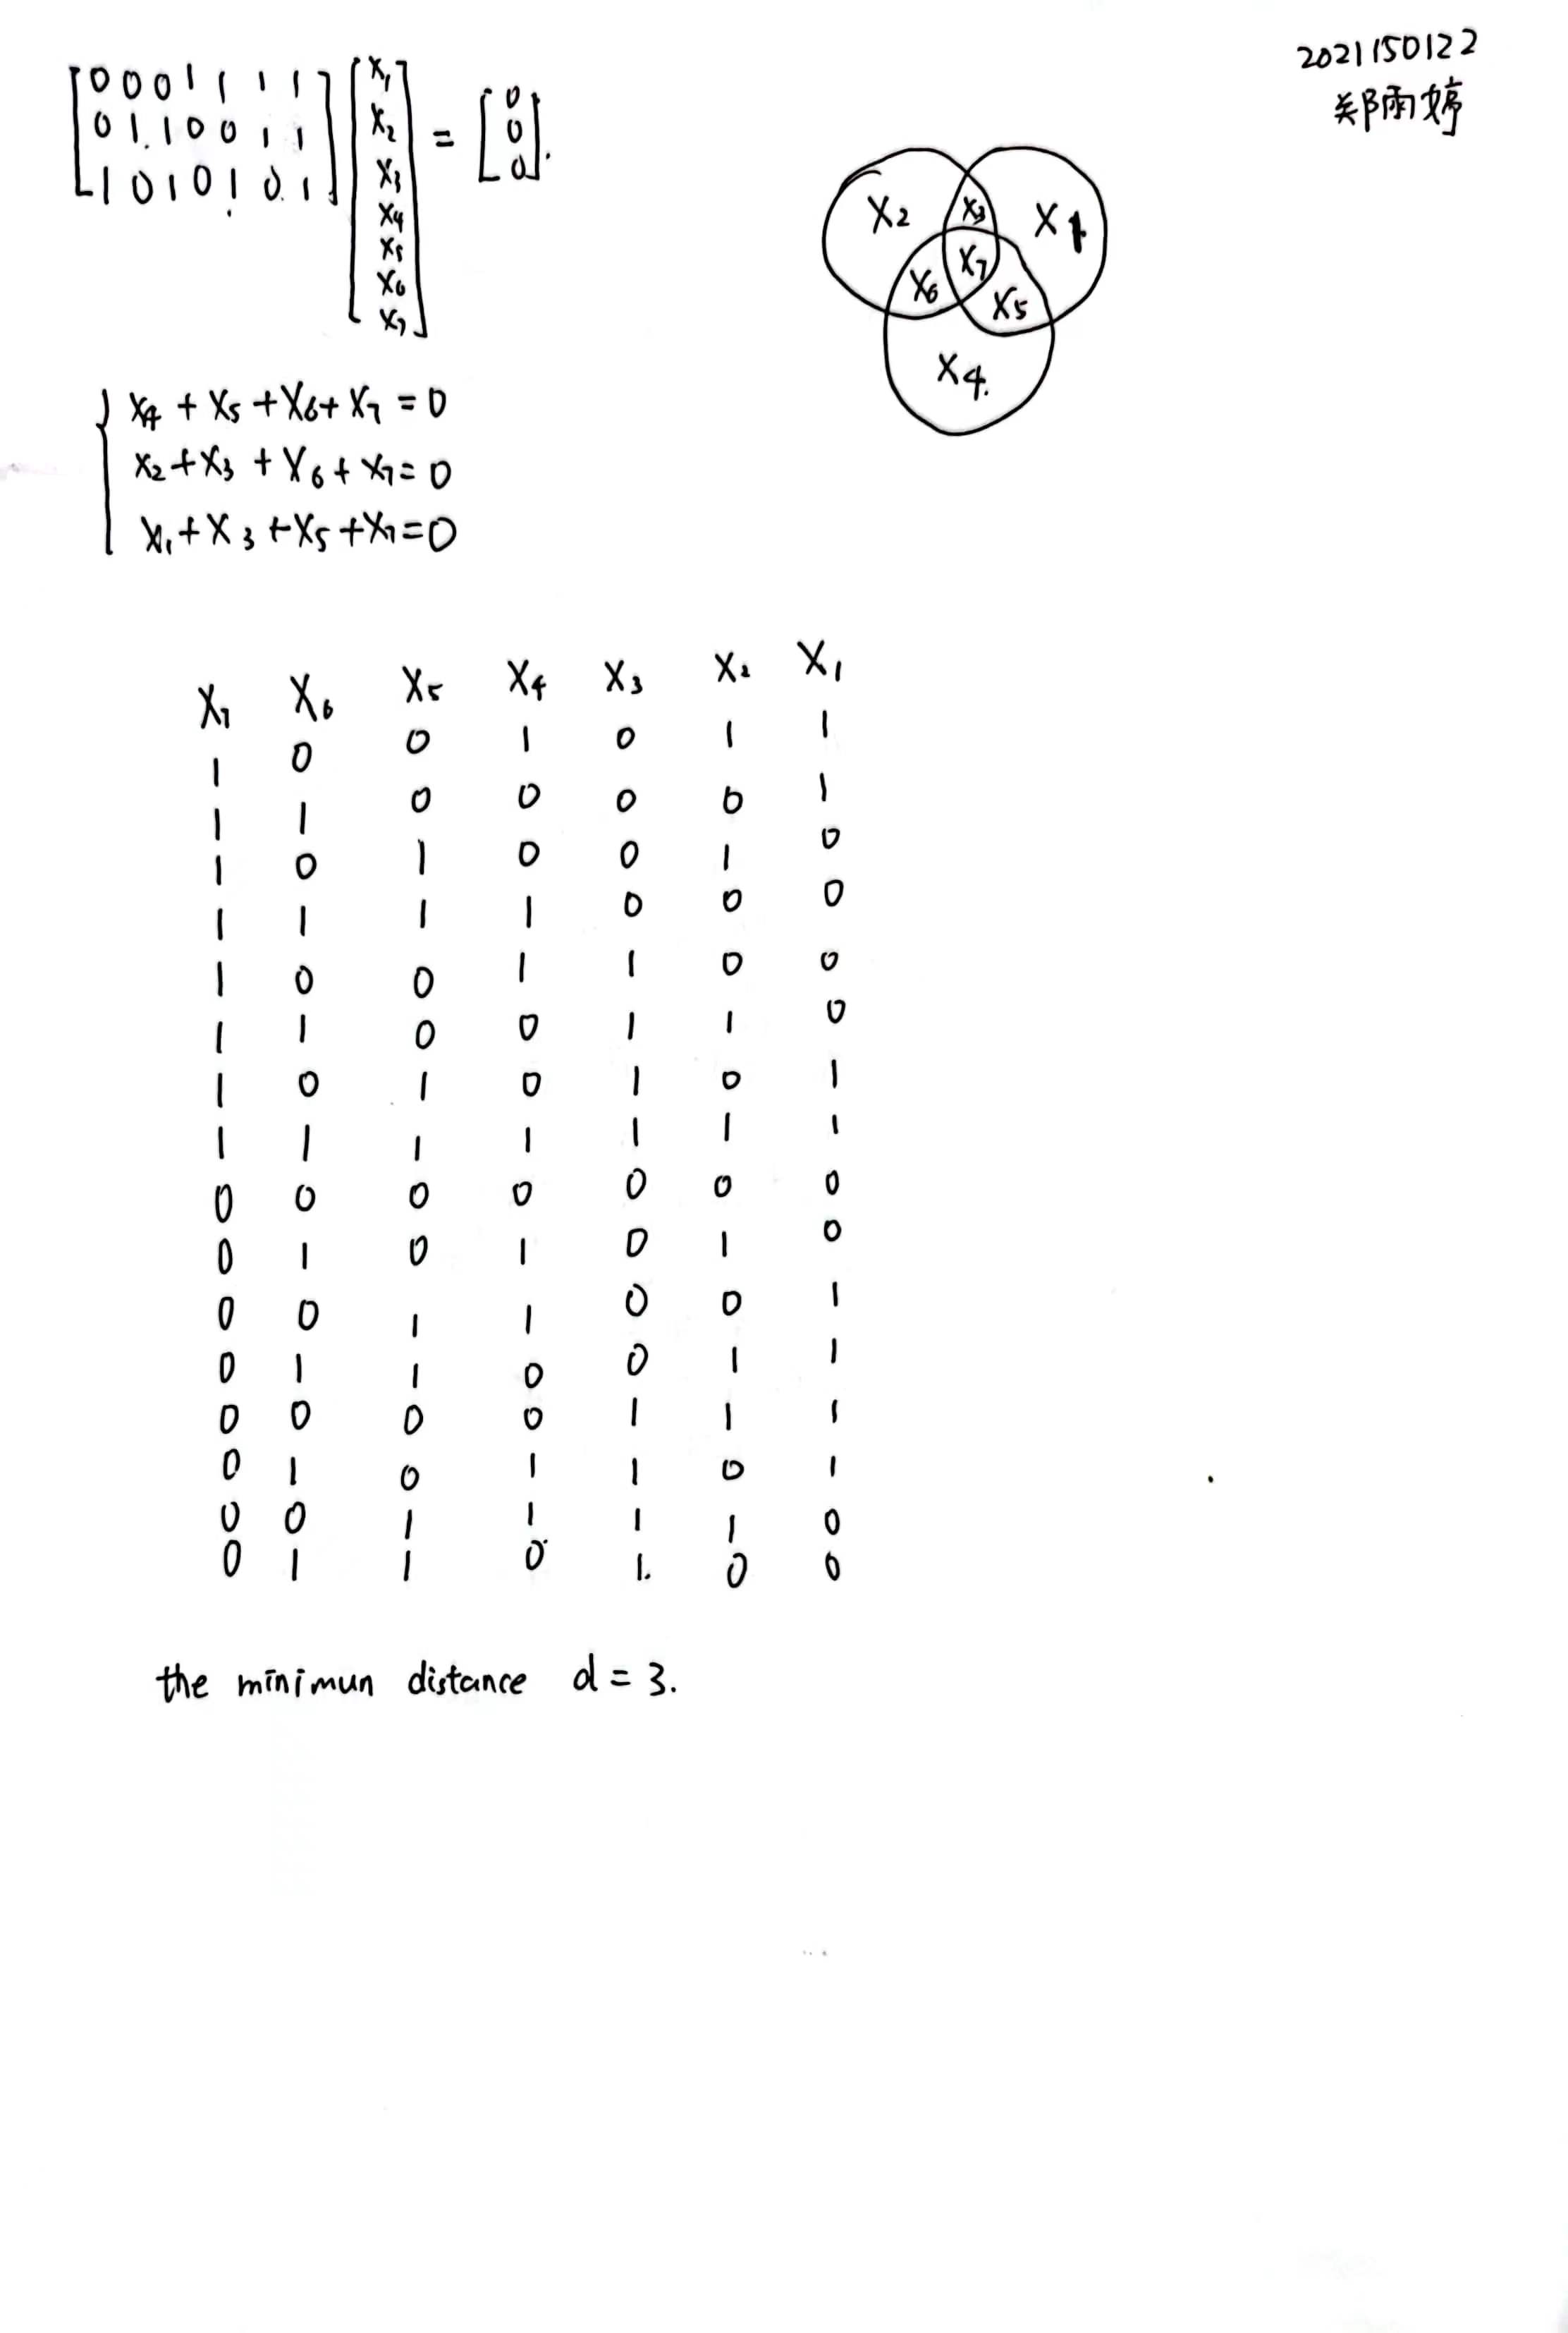 2021150122
郑雨婷
[0 0 0 1 1 1 1] [x1] [0]
[0 1 1 0 0 1 1] [x2] = [0]
[1 0 1 0 1 0 1] [x3] [0].
x4
x5
x6
x7
x2 x3 x1
x7
x6 x5
x4.
x4 + x5 + x6 + x7 = 0
x2 + x3 + x6 + x7 = 0
x1 + x3 + x5 + x7 = 0
x7 x6 x5 x4 x3 x2 x1
1 0 0 1 0 1 1
1 1 0 0 0 0 1
1 0 1 0 0 1 0
1 1 1 1 0 0 0
1 0 0 1 1 0 0
1 1 0 0 1 1 0
1 0 1 0 1 0 1
1 1 1 1 1 1 1
0 0 0 0 0 0 0
0 1 0 1 0 1 0
0 0 1 1 0 0 1
0 1 1 0 0 1 1
0 0 0 0 1 1 1
0 1 0 1 1 0 1
0 0 1 1 1 1 0
0 1 1 0 1. 0 0
the minimun distance d = 3.